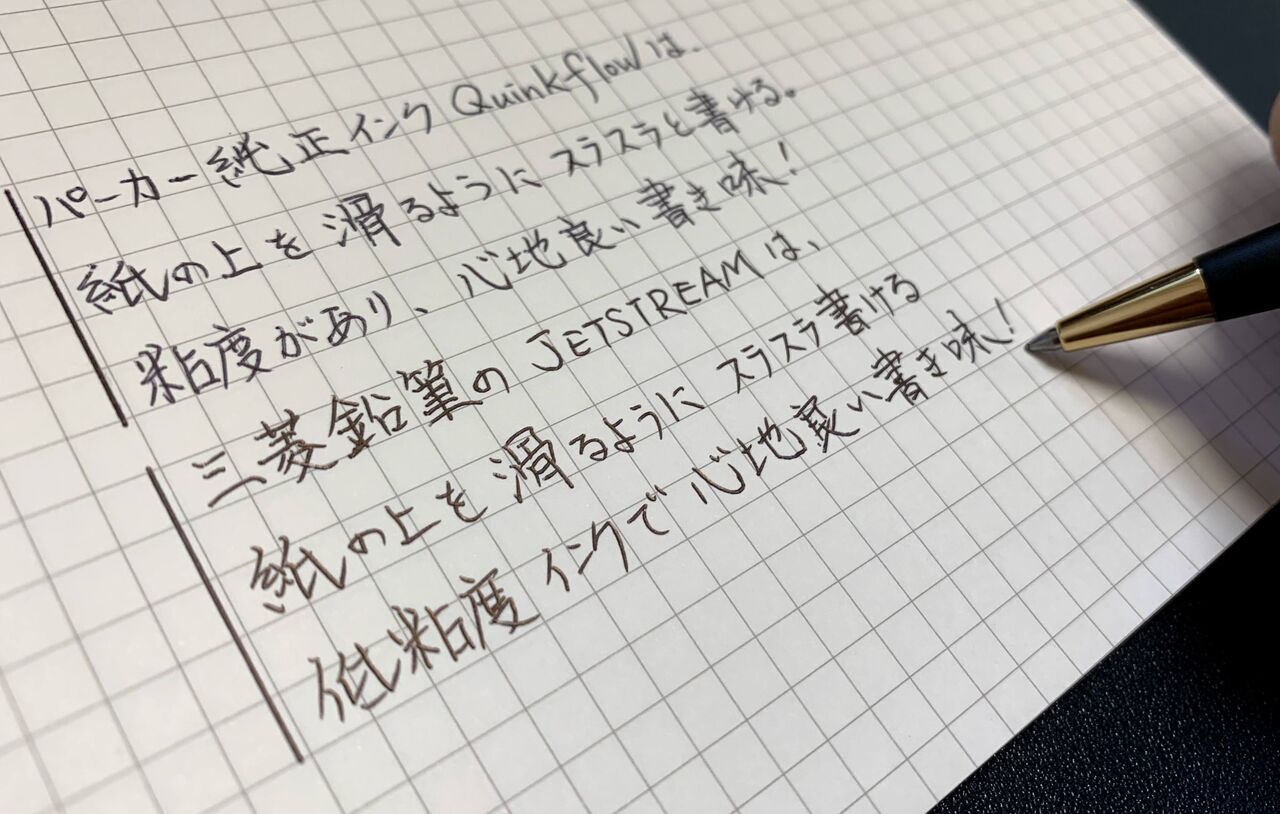 パーカー純正インク Quinkflowは、
紙の上を滑るようにスラスラと書ける。
粘度があり、心地良い書き味!
三菱鉛筆の JETSTREAMは、
紙の上を滑るように スラスラ書ける
低粘度インクで心地良い書き味!